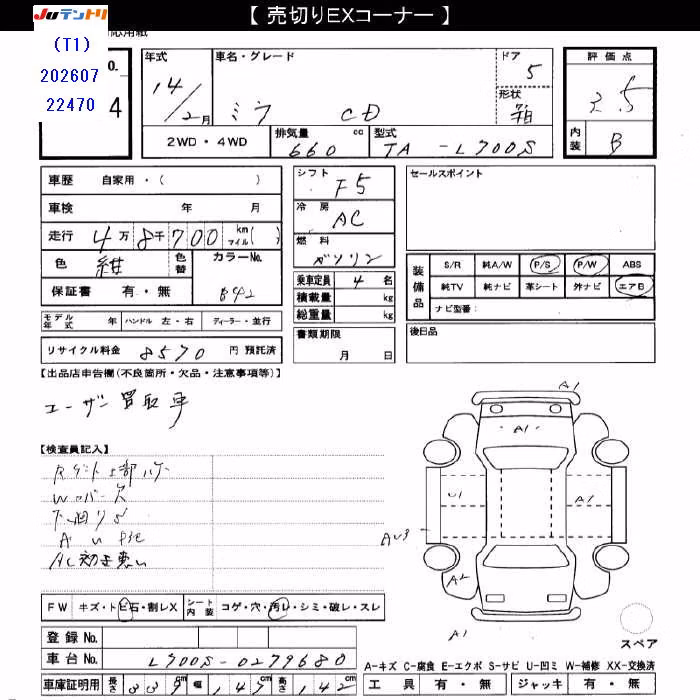 【 売切りEXコーナー 】
JUテントリ
(T1)
202607
22470
応用紙
No.
4
年式 車名・グレード ドア 5
14/2月 ミラ CD 形状 箱
2WD・4WD 排気量 660 cc 型式 TA-L700S
評価点
3.5
内装 B
車歴 自家用・( )
車検 年 月
走行 4万8千700 km マイル( )
色 紺 色替 カラーNo. B42
保証書 有・無
モデル年式 年 ハンドル 左・右 ディーラー・並行
リサイクル料金 8570 円 預託済
シフト F5
冷房 AC
燃料 ガソリン
乗車定員 4 名
積載量 kg
総重量 kg
書類期限
月 日
セールスポイント
装備品 S/R 純A/W P/S P/W ABS
純TV 純ナビ 革シート 外ナビ エアB
ナビ型番:
後日品
【出品店申告欄(不良箇所・欠品・注意事項等)】
ユーザー買取車
【検査員記入】
下廻りS
AC効き悪い
FW キズ・トビ石・割レX シート内装 コゲ・穴・汚レ・シミ・破レ・スレ
登録No.
車台No. L700S-0279680
車庫証明用 長さ 339cm 幅 147cm 高さ 142cm
A1
A1
U1
A1
AU3
A2
A1
スペア
A-キズ C-腐食 E-エクボ S-サビ U-凹ミ W-補修 XX-交換済
工具 有・無 ジャッキ 有・無